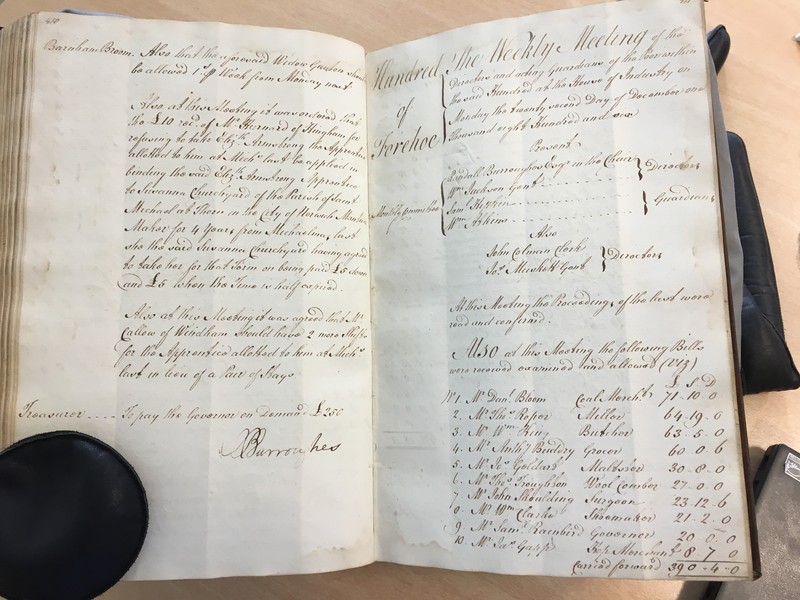 410
Barnham Broom. Also that the aforesaid Widow Graxlen should
be allowed 1s. pr Week from Monday next
Also at this Meeting it was ordered that
the £10 recd. of Mr Hernard of Hingham for
refusing to take Elizth. Armstrong the Apprentice
allotted to him at Michs. last be applied in
binding the said Elizth. Armstrong Apprentice
to Susanna Churchyard of the Parish of Saint
Michael at Thorn in the City of Norwich Mantua
Maker for 4 Years from Michaelmas last
she the said Susanna Churchyard having agreed
to take her for that Term on being paid £5 down
and £5 when the Time is half expired.
Also at this Meeting it was agreed that Mr
Callow of Windham should have 2 more Shifts
for the Apprentice allotted to him at Michs.
last in lieu of a Pair of Stays
Treasurer .... To pay the Governor on Demand £250
Burroughes
Hundred
of
Forehoe
The Weekly Meeting of the
Directors and acting Guardians of the Poor within
the said Hundred at the House of Industry on
Monday the twenty second Day of December one
thousand eight Hundred and one
Present
Randall Burroughes Esqr. in the Chair
Wm. Jackson Gent.
Directors
Saml.
Wm. Atkins
Guardians
Also
John Colman Clerk
Jos. Muskett Gent
Directors
At this Meeting the Proceedings of the last were
read and confirmed.
Also at this Meeting the following Bills
were received examined and allowed (Viz)
£ S D
No. 1 Mr Danl. Bloom Coal Mercht. 71-10-0
2. Mr Thos. Roper Miller 64-19-0
3. Mr Wm. King Butcher 63-5-0
4. Mr Anthy Budery Grocer 60-0-6
5. Mr Jos. Goldard Maltster 30-8-0
6. Mr Thos. Troughton Wool Comber 27-0-0
7 Mr John Shoulding Surgeon 23-12-6
8. Mr Wm. Clarke Shoemaker 21-2-0
9. Mr Saml. Rainbird Governor 20 0 0
10 Mr Jas. Gapp Hop Merchant 8 7 0
Carried forward 390-4-0